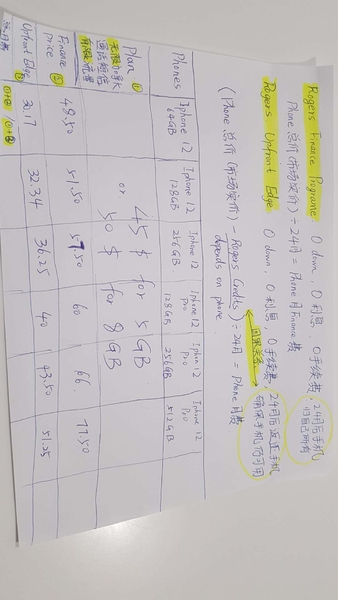 Rogers Finance Programe 0 down, 0 利息, 0 手续费, 24月后手机归自己所有
Phone 总价 (市场定价) ÷ 24月 = Phone 月 Finance 费
Rogers Upfront Edge 0 down, 0 利息, 0 手续费, 24月后返还手机
确保手机仍可用
(Phone 总价 (市场定价) - Rogers Credits) ÷ 24月 = Phone 月费
depends on phone
Phones Iphone 12 64GB Iphone 12 128GB Iphone 12 256GB Iphone 12 Pro 128GB Iphone 12 Pro 256GB Iphone 12 Pro 512GB
Plan ①
无限加拿大通话短信
45 $ for 5 GB
or
50 $ for 8 GB
Finance price ② 48.50 51.50 57.50 60 66 77.50
Upfront Edge 30.17 32.34 36.25 40 43.50 51.25